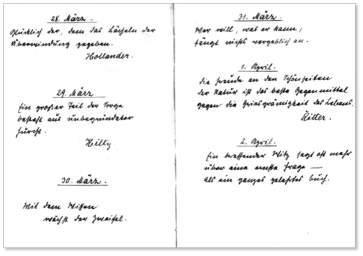 28. März.
Glücklich der, dem das Lächeln der
Überwindung gegeben.
Hollander.
29. März
Ein großer Teil der Sorge
besteht aus unbegründeter
Furcht.
Hilty
30. März.
Mit dem Wissen
wächst der Zweifel.
31. März.
Wer will, was er kann,
fängt nichts vergeblich an.
1. April.
Die Freude an den Schönheiten
der Natur ist das beste Gegenmittel
gegen die Griesgrämigkeit des Lebens.
Ritter.
2. April.
Ein treffender Witz sagt oft mehr
über eine ernste Frage —
als ein ganzes gelehrtes Buch.